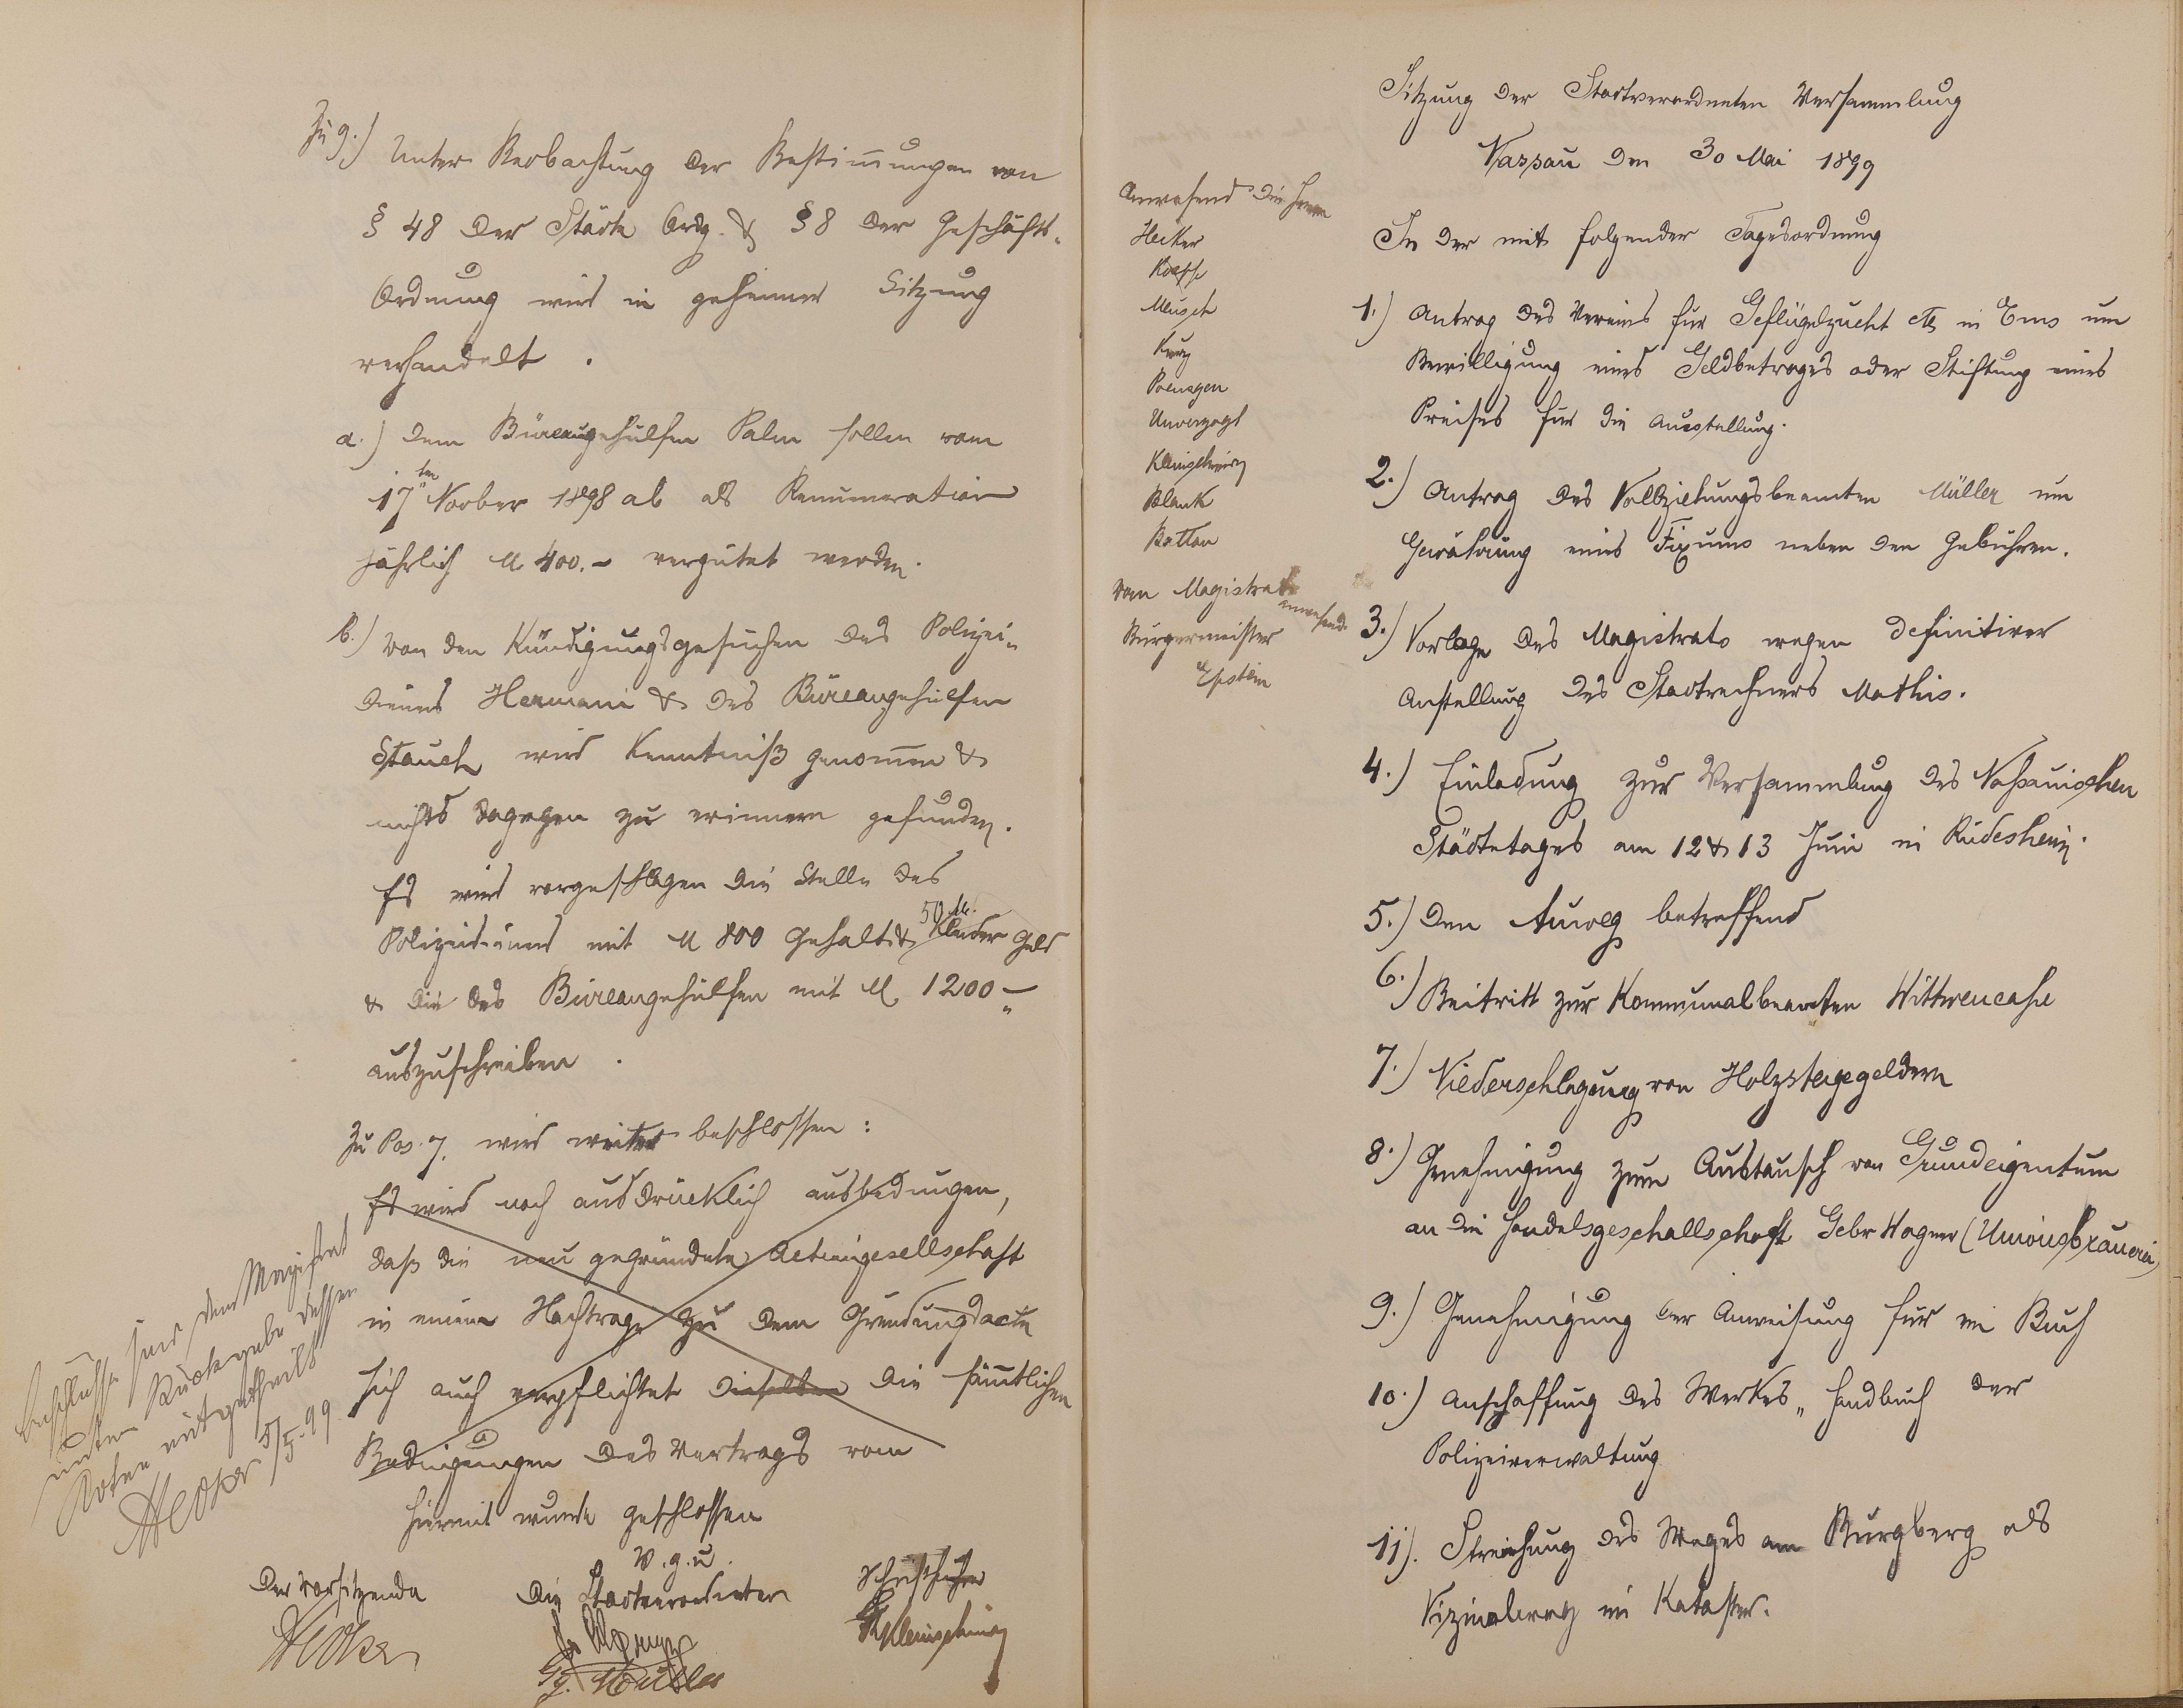 Zu 9.) Unter Beobachtung der Bestim̅ungen von
§ 48 der Städte Ordg. & § 8 der Geschäfts-
Ordnung wird in geheimer Sitzung
verhandelt.
a.) Dem Büreaugehülfen Palm sollen vom
17ten Novber 1898 ab als Remuneration
jährlich M 400.– vergütet werden.
b.) Von den Kündigungsgesuchen des Polizei-
dieners Hermani & des Büreaugehülfen
Stauch wird Kenntniß genom̅en &
nichts dagegen zu erinnern gefunden.
Es wird vorgeschlagen die Stelle des
Polizeidieners mit M 800 Gehalt & 50 M. Kleider Geld
& die des Büreaugehülfen mit M. 1200–
auszuschreiben.
Zu Pos. 7. wird weiter beschlossen:
Es wird noch ausdrücklich ausbedungen,
daß die neu gegründete Actiengesellschaft
in einem Nachtrage zu dem Gründungsacte
sich auch verpflichtet dieselben die säm̅tlichen
Bedingungen des Vertrags vom
Hiermit wurde geschlossen
V. g. u.
Der Vorsitzende
Hecker
Die Stadtverordneten
Gg. Müller
Schriftführer
Kleinschmidt
Beschlüsse sind dem Magistrat
unter Rückgabe dessen
Acten mitgetheilt
Hecker 5/5. 99
Sitzung der Stadtverordneten Versammlung
Nassau den 30 Mai 1899
Anwesend die Herrn
Hecker
Meusch
Kurz
Poensgen
Unverzagt
Kleinschmidt
Blank
Batton
vom Magistrat anwesend
Bürgermeister
Epstein
In der mit folgender Tagesordnung
1.) Antrag des Vereins für Geflügelzucht etc in Ems um
Bewilligung eines Geldbetrages oder Stiftung eines
Preises für die Ausstellung.
2.) Antrag des Vollziehungsbeamten Müller um
Gewährung eines Fixums neben den Gebühren.
3.) Vorlage des Magistrats wegen definitiver
Anstellung des Stadtrechners Mathis.
4.) Einladung zur Versammlung des Naßauischen
Städtetages am 12 & 13 Juni in Rüdesheim.
5.) Den Auweg betreffend
6.) Beitritt zur Kommunalbeamten Wittwencaße
7.) Niederschlagung von Holzsteigegeldern
8.) Genehmigung zum Austausch von Grundeigentum
an die Handelsgeschallschaft Gebr Wagner (Unionsbrauerei)
9.) Genehmigung der Anweisung für ein Buch
10.) Anschaffung des Werkes „Handbuch der
Polizeiverwaltung
11). Streichung des Weges am Burgberg als
Vizinalweg im Kataster.